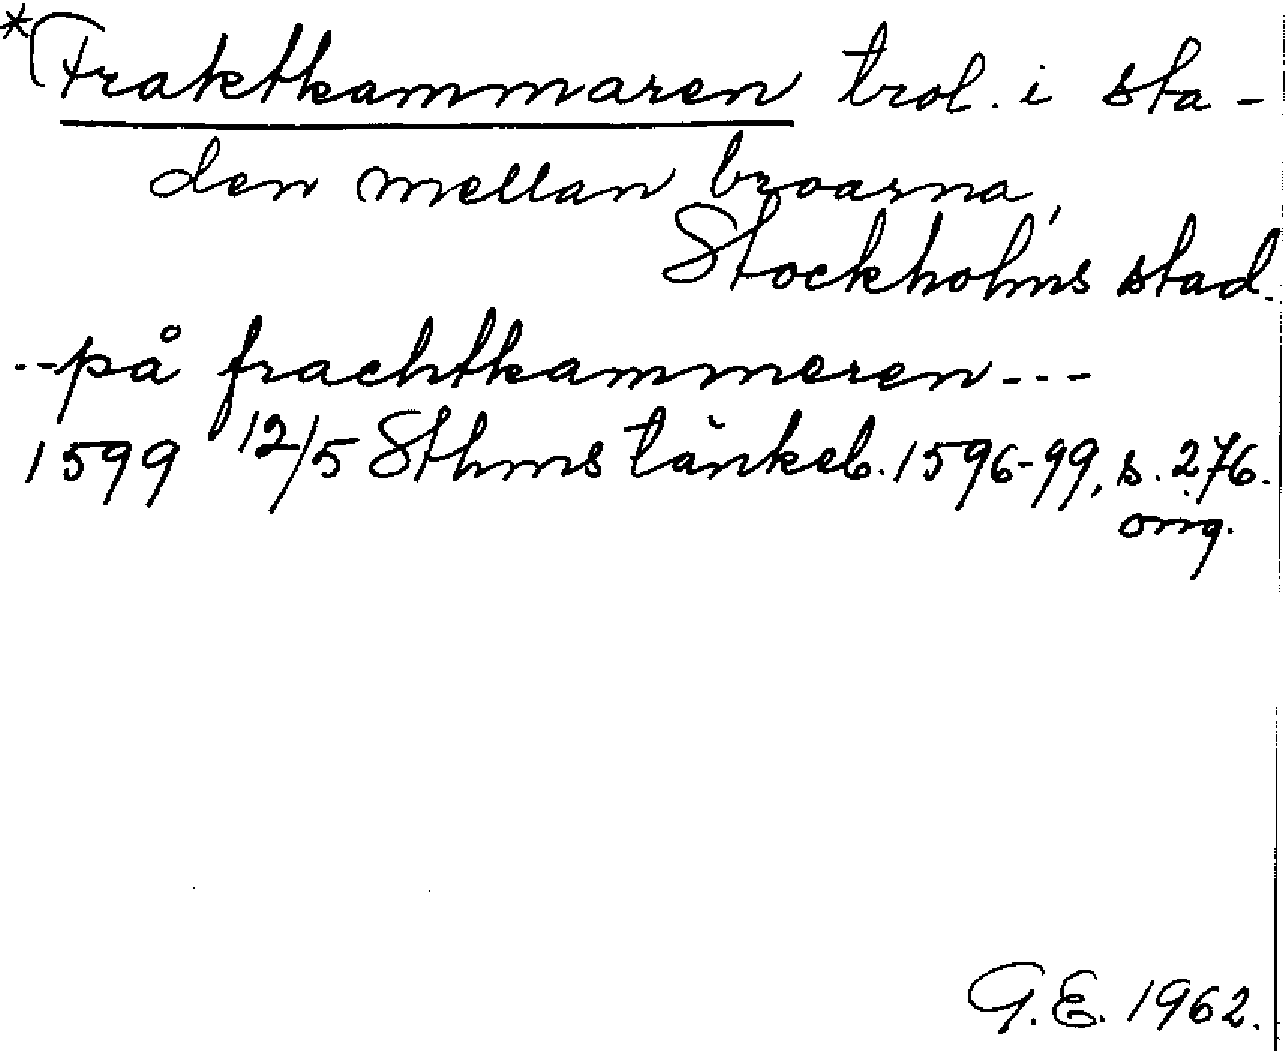 *Fraktkammaren trol. i sta-
den mellan broarna,
Stockholms stad.
--på frachtkammeren---
1599 12/5 Sthms tänkeb. 1596-99, s. 276.
orig.
G.E. 1962.